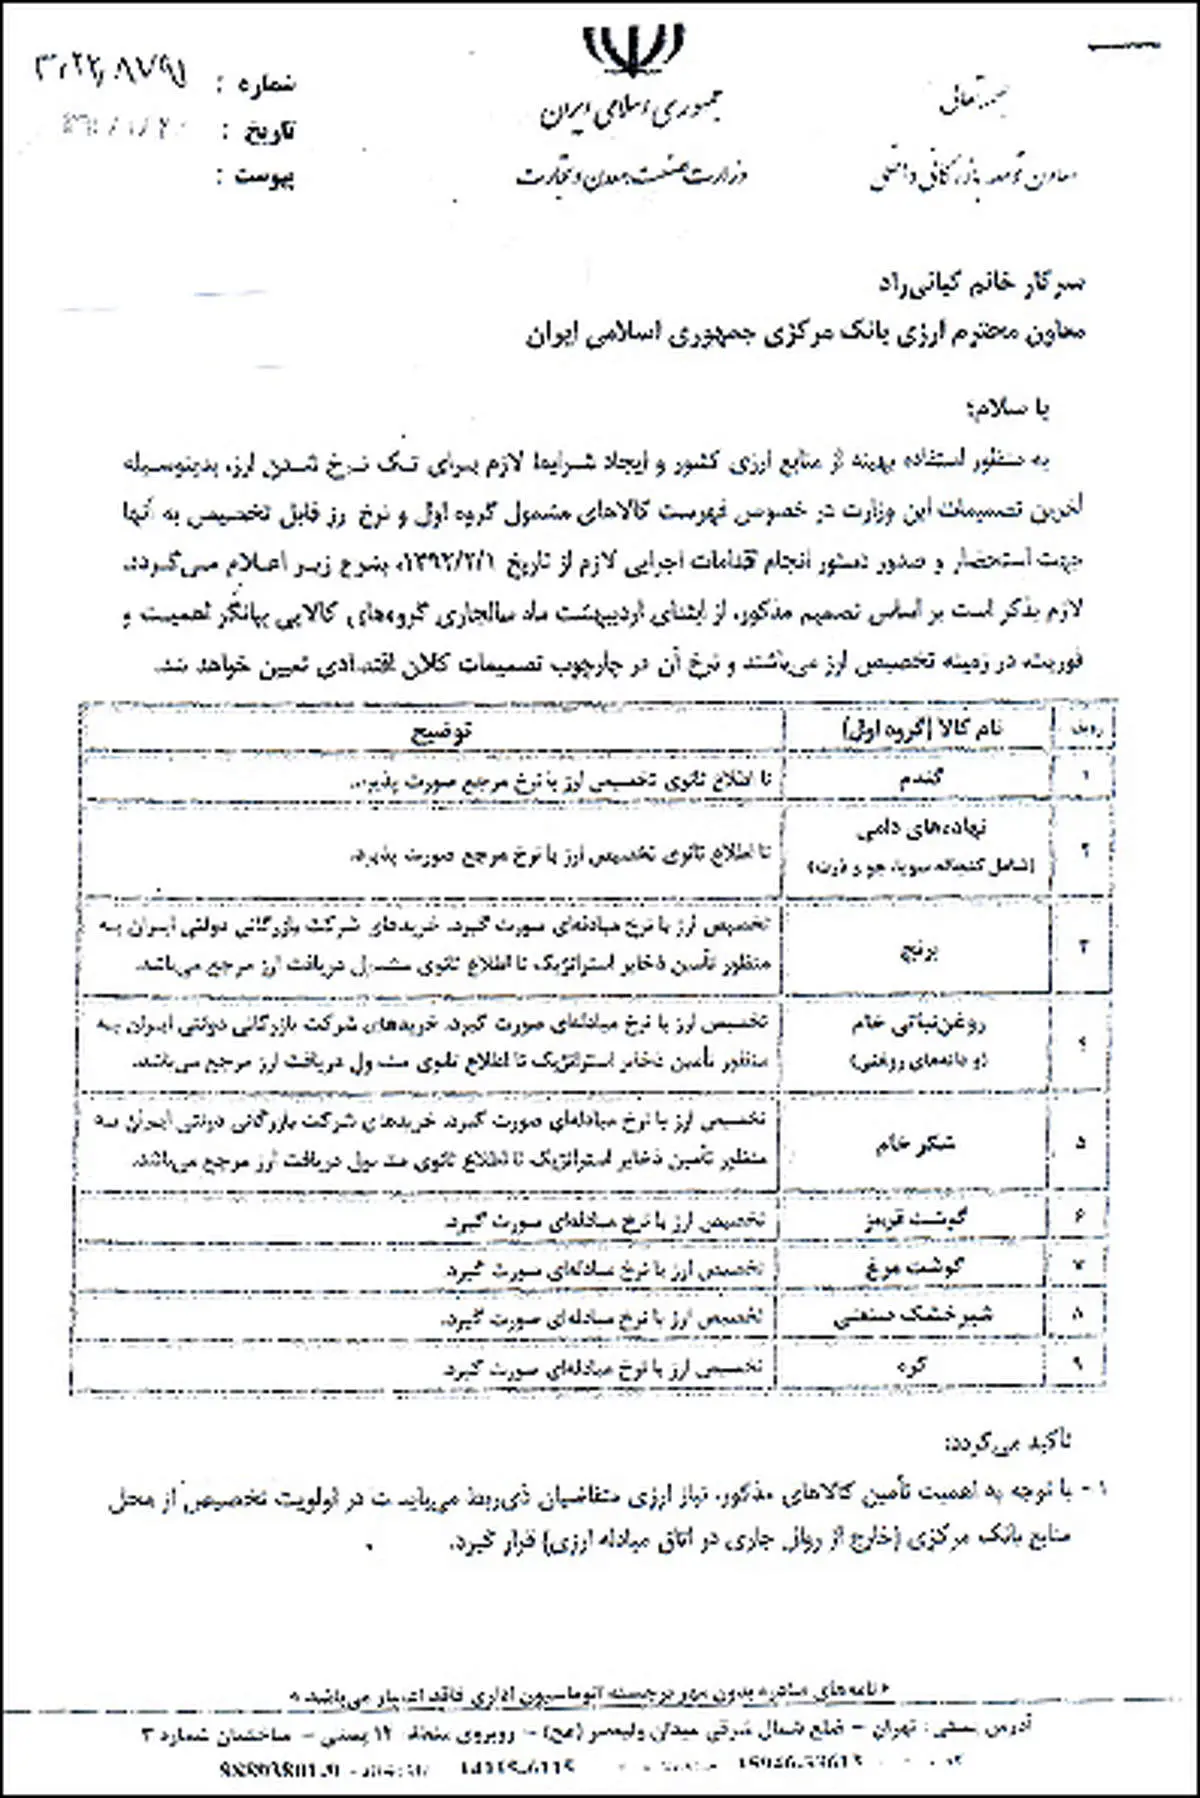 جمهوری اسلامی ایران
وزارت صنعت، معدن و تجارت
بسمه تعالی
معاون توسعه بازرگانی داخلی
شماره :
تاریخ :
پیوست :
سرکار خانم کیانی‌راد
معاون محترم ارزی بانک مرکزی جمهوری اسلامی ایران
با سلام؛
به منظور استفاده بهینه از منابع ارزی کشور و ایجاد شرایط لازم برای تک نرخ شدن ارز، بدینوسیله
آخرین تصمیمات این وزارت در خصوص فهرست کالاهای مشمول گروه اول و نرخ رز قابل تخصیص به آنها
جهت استحضار و صدور دستور انجام اقدامات اجرایی لازم از تاریخ ۱۳۹۲/۲/۱، بشرح زیر اعلام می‌گردد.
لازم بذکر است بر اساس تصمیم مذکور، از ابتدای اردیبهشت ماه سالجاری گروه‌های کالایی بیانگر اهمیت و
فوریت، در زمینه تخصیص ارز می‌باشند و نرخ آن در چارچوب تصمیمات کلان اقتصادی تعیین خواهد شد.
ردیف نام کالا (گروه اول) توضیح
۱ گندم تا اطلاع ثانوی تخصیص ارز با نرخ مرجع صورت پذیرد.
۲ نهاده‌های دامی (شامل کنجاله سویا، جو و ذرت) تا اطلاع ثانوی تخصیص ارز با نرخ مرجع صورت پذیرد.
۳ برنج تخصیص ارز با نرخ مبادله‌ای صورت گیرد. خریدهای شرکت بازرگانی دولتی ایران به
منظور تأمین ذخایر استراتژیک تا اطلاع ثانوی مشمول دریافت ارز مرجع می‌باشد.
۴ روغن‌نباتی خام (و دانه‌های روغنی) تخصیص ارز با نرخ مبادله‌ای صورت گیرد. خریدهای شرکت بازرگانی دولتی ایران به
منظور تأمین ذخایر استراتژیک تا اطلاع ثانوی مشمول دریافت ارز مرجع می‌باشد.
۵ شکر خام تخصیص ارز با نرخ مبادله‌ای صورت گیرد. خریدهای شرکت بازرگانی دولتی ایران به
منظور تأمین ذخایر استراتژیک تا اطلاع ثانوی مشمول دریافت ارز مرجع می‌باشد.
۶ گوشت قرمز تخصیص ارز با نرخ مبادله‌ای صورت گیرد.
۷ گوشت مرغ تخصیص ارز با نرخ مبادله‌ای صورت گیرد.
۸ شیرخشک صنعتی تخصیص ارز با نرخ مبادله‌ای صورت گیرد.
۹ کره تخصیص ارز با نرخ مبادله‌ای صورت گیرد.
تأکید می‌گردد:
۱- با توجه به اهمیت تأمین کالاهای مذکور، نیاز ارزی متقاضیان ذی‌ربط می‌بایست در اولویت تخصیص از محل
منابع بانک مرکزی (خارج از روال جاری در اتاق مبادله ارزی) قرار گیرد.
* نامه‌های صادره بدون مهر برجسته اتوماسیون اداری فاقد اعتبار می‌باشد *
آدرس پستی : تهران - ضلع شمال شرقی میدان ولیعصر (عج) - روبروی منطقه ۱۲ پستی - ساختمان شماره ۲